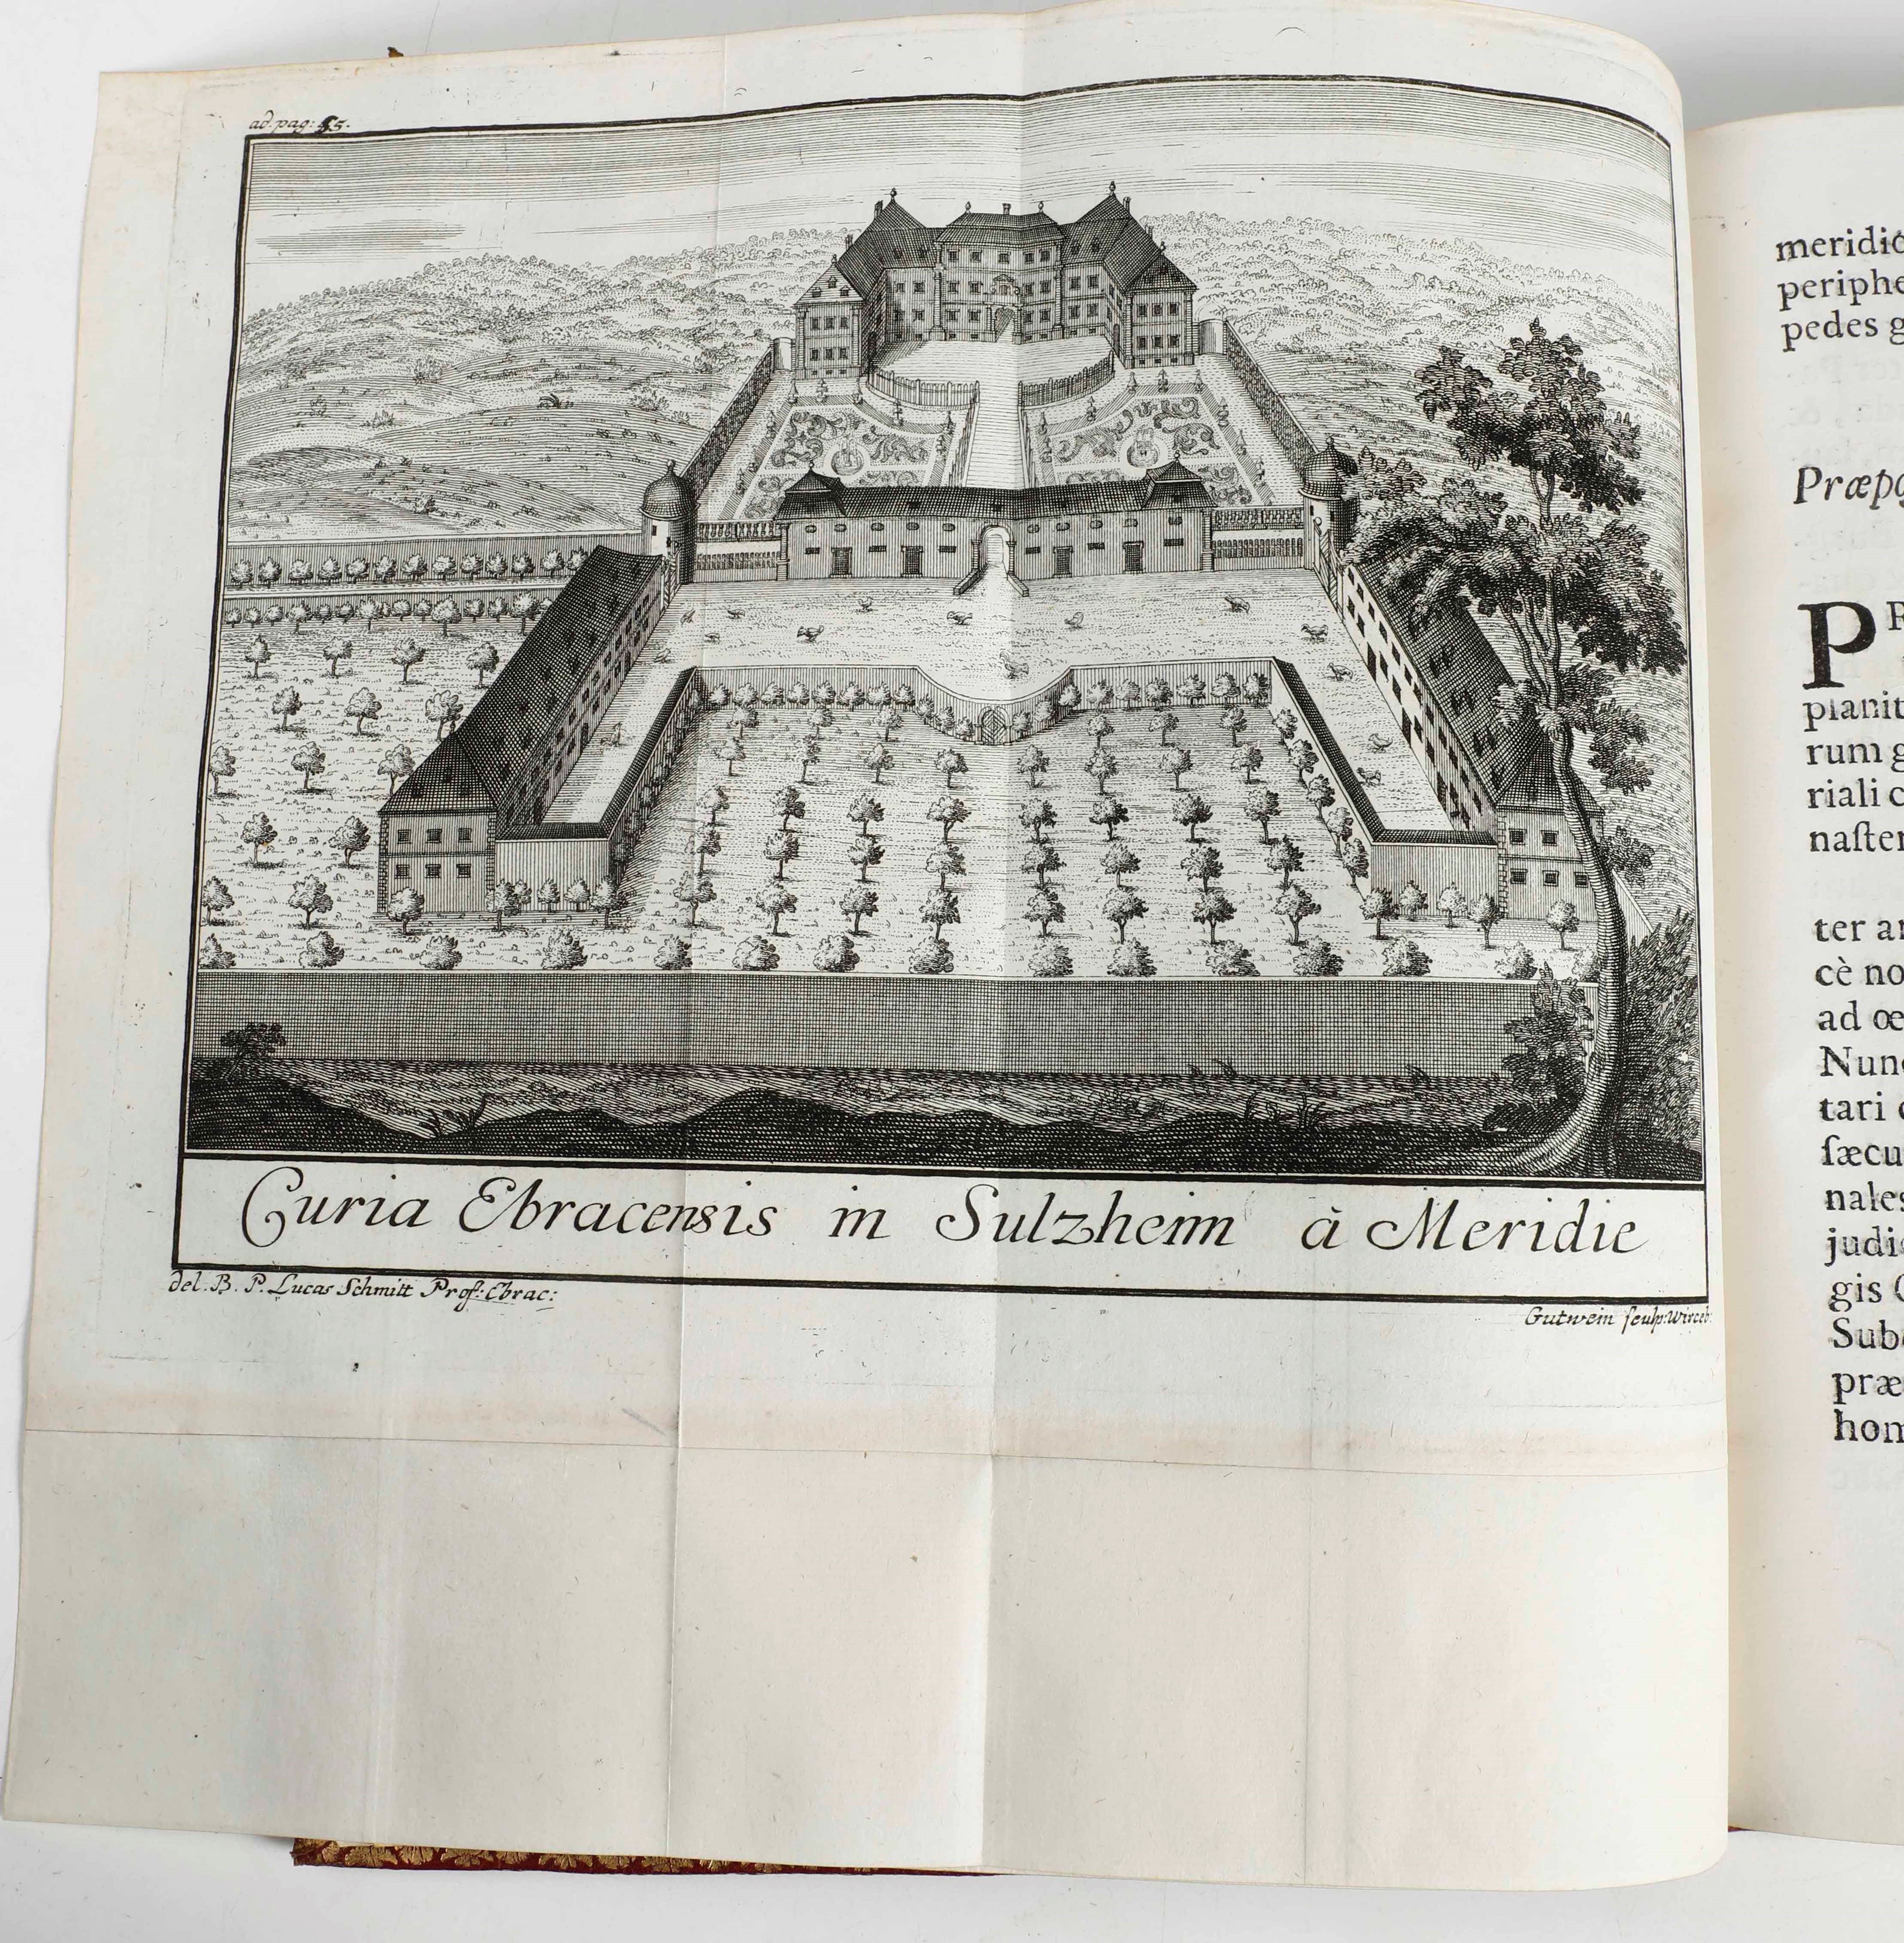 ad. pag: 45.
Curia Ebracensis in Sulzheim à Meridie
del. B. P. Lucas Schmitt Prof: Ebrac:
Gutwein sculp: Wirceb:
meridic
periphe
pedes g
Præpo
PR
planit
rum g
riali c
naſter
ter ar
cè no
ad œ
Nunc
tari c
ſæcu
nales
judic
gis C
Sub
præ
hom